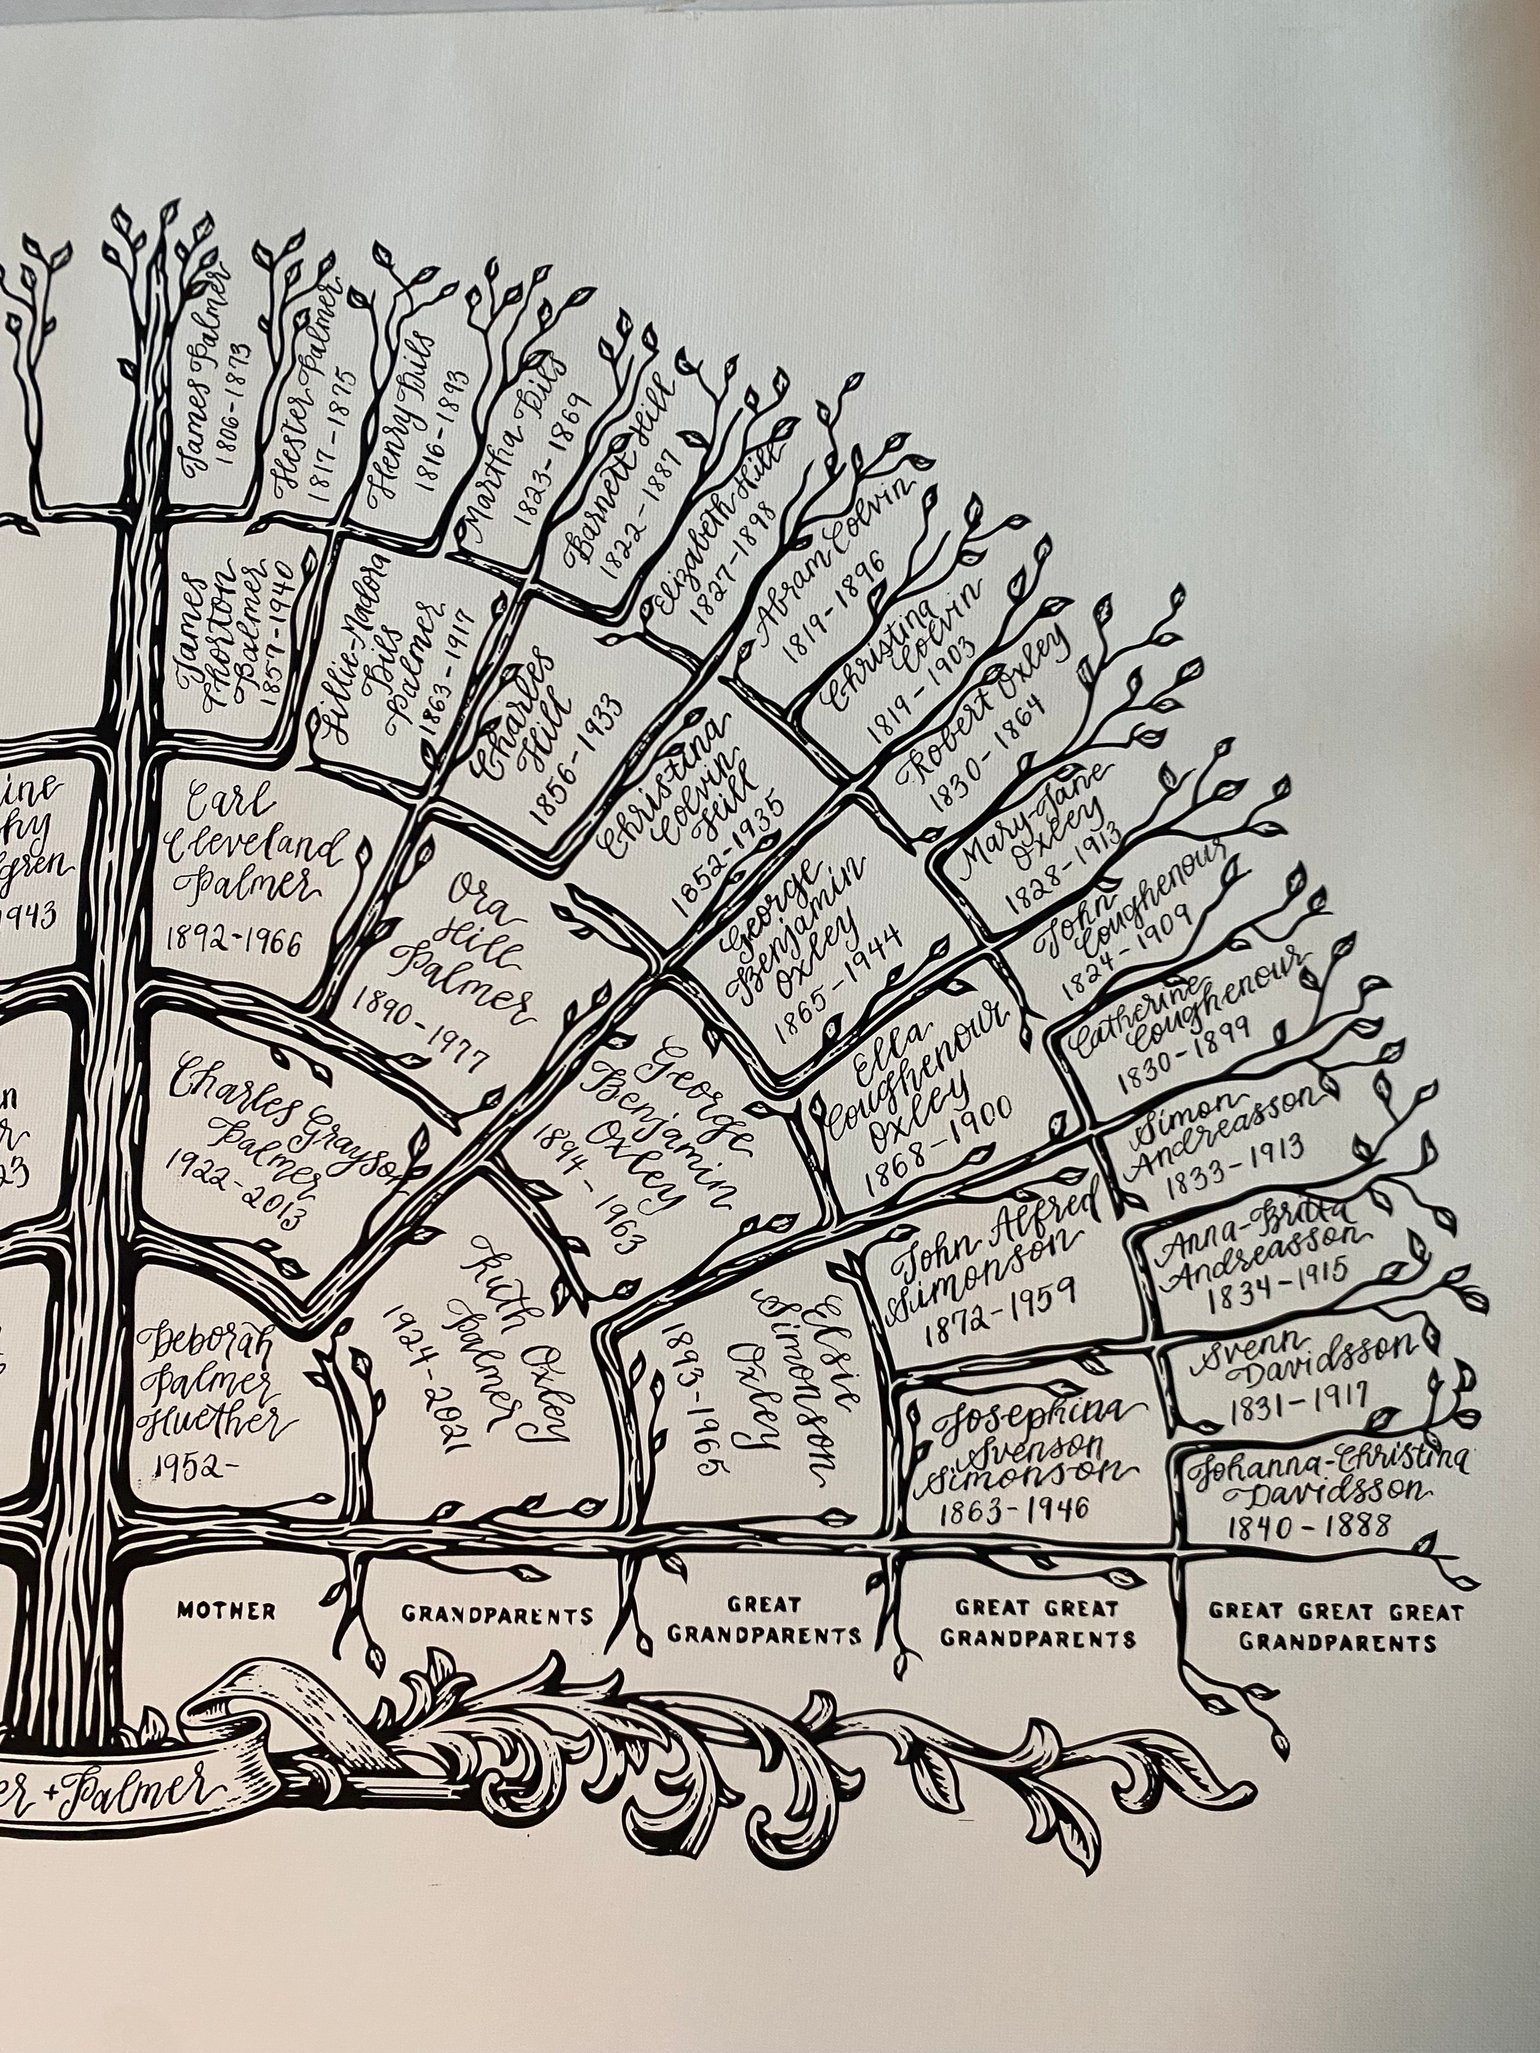 James Palmer
1806-1873
Hester Palmer
1817-1875
Henry Dils
1816-1893
Martha Dils
1823-1869
Barnett Hill
1822-1887
Elizabeth Hill
1827-1898
Abram Colvin
1819-1896
Christina
Colvin
1819-1903
Robert Oxley
1830-1864
Mary-Jane
Oxley
1828-1913
John
Coughenour
1824-1909
Catherine
Coughenour
1830-1899
Simon
Andreasson
1833-1913
Anna-Britta
Andreasson
1834-1915
Svenn
Davidsson
1831-1917
Johanna-Christina
Davidsson
1840-1888
James
Thorton
Palmer
1857-1940
Lillie-Madora
Dils
Palmer
1863-1917
Charles
Hill
1856-1933
Christina
Colvin
Hill
1852-1935
George
Benjamin
Oxley
1865-1944
Ella
Coughenour
Oxley
1868-1900
John Alfred
Simonson
1872-1959
Josephina
Svenson
Simonson
1863-1946
Carl
Cleveland
Palmer
1892-1966
Ora
Hill
Palmer
1890-1977
George
Benjamin
Oxley
1894-1963
Elsie
Simonson
Oxley
1893-1965
Charles Grayson
Palmer
1922-2013
Ruth Oxley
Palmer
1924-2021
Deborah
Palmer
Huether
1952-
ine
hy
gren
1943
n
r
23
MOTHER
GRANDPARENTS
GREAT
GRANDPARENTS
GREAT GREAT
GRANDPARENTS
GREAT GREAT GREAT
GRANDPARENTS
er + Palmer